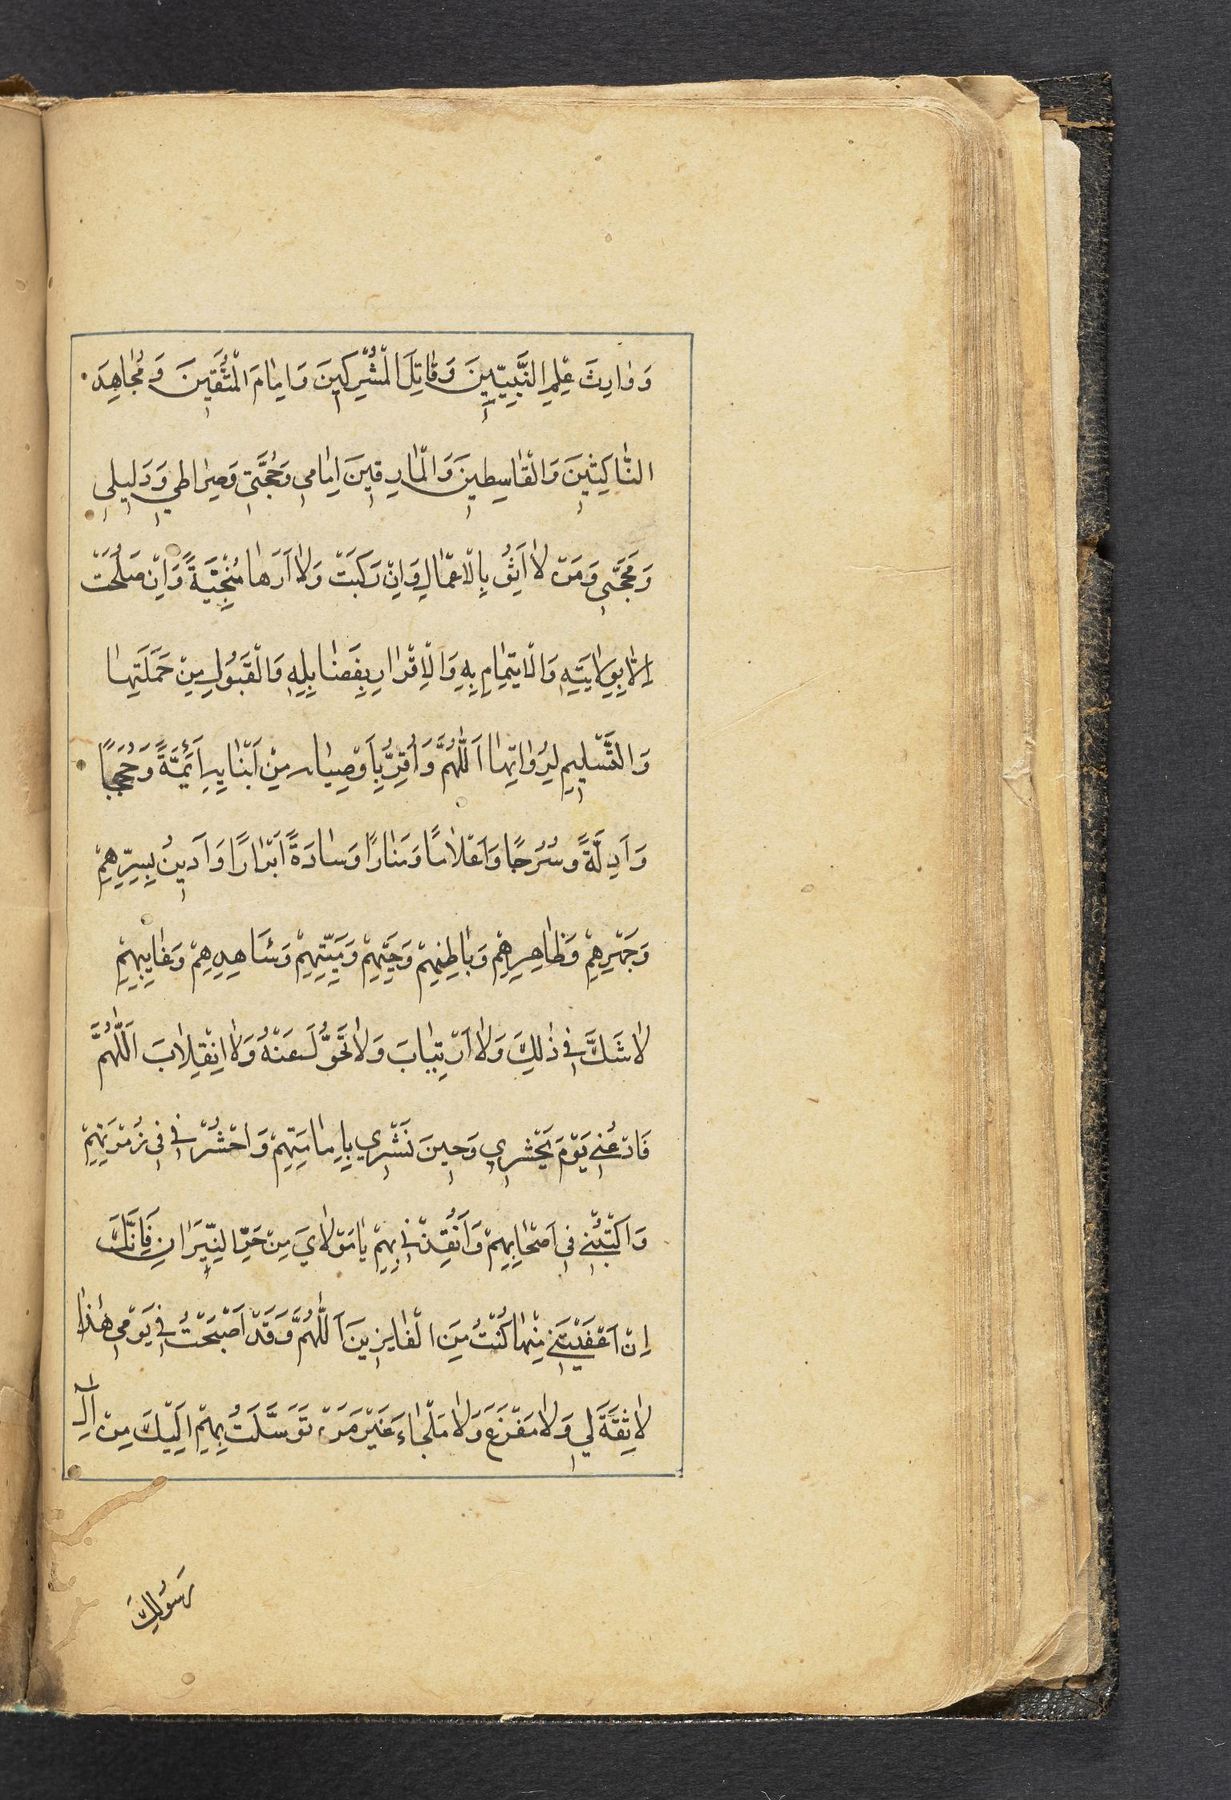 وَوٰارِثَ عِلْمِ النَّبِيّيٖنَ وَقٰاتِلَ الْمُشْرِكيٖنَ وَاِمٰامَ الْمُتَّقيٖنَ وَ مُجٰاهِدَ
النّٰاكِثيٖنَ وَالْقٰاسِطيٖنَ وَالْمٰارِقيٖنَ اِمٰاميٖ وَحُجَّتيٖ وَصِرٰاطيٖ وَدَليٖليٖ
وَمَحَجَّتيٖ وَمَنْ لاٰ اَثِقُ بِالْاَعْمٰالِ وَاِنْ زَكَتْ وَلاٰ اَرٰهٰا مُنْجِيَةً وَاِنْ صَلُحَتْ
اِلّاٰ بِوِلاٰيَتِهِ وَالْاِيتِمٰامِ بِهِ وَالْاِقْرٰارِ بِفَضٰايِلِهِ وَالْقَبُولِ مِنْ حَمَلَتِهٰا
وَالتَّسْليٖمِ لِرُوٰاتِهٰا اَللّٰهُمَّ وَاُقِرُّ بِاَوْصِيٰايِهِ مِنْ اَبْنٰايِهِ اَئِمَّةً وَحُجَجًا
وَاَدِلَّةً وَسُرُجًا وَاَعْلاٰمًا وَمَنٰارًا وَسٰادَةً اَبْرٰارًا وَاَديٖنُ بِسِرِّهِمْ
وَجَهْرِهِمْ وَظٰاهِرِهِمْ وَبٰاطِنِهِمْ وَحَيِّهِمْ وَمَيِّتِهِمْ وَشٰاهِدِهِمْ وَغٰايِبِهِمْ
لاٰ شَكَّ فيٖ ذٰلِكَ وَلاٰ اَرْتِيٰابَ وَلاٰ تَحَوُّلَ عَنْهُ وَلاٰ انْقِلاٰبَ اَللّٰهُمَّ
فَادْعُنيٖ يَوْمَ حَشْريٖ وَحيٖنَ نَشْريٖ بِاِمٰامَتِهِمْ وَاحْشُرْنيٖ فيٖ زُمْرَتِهِمْ
وَاكْتُبْنيٖ فيٖ اَصْحٰابِهِمْ وَاَنْقِذْنيٖ بِهِمْ يٰا مَوْلاٰيَ مِنْ حَرِّ النّيٖرَانِ فَاِنَّكَ
اِنْ اَعْفَيْتَنيٖ مِنْهٰا كُنْتُ مِنَ الْفٰايِزيٖنَ اَللّٰهُمَّ وَقَدْ اَصْبَحْتُ فيٖ يَوْميٖ هٰذٰا
لاٰ ثِقَةَ ليٖ وَلاٰ مَفْزَعَ وَلاٰ مَلْجٰاءَ غَيْرَ مَنْ تَوَسَّلْتُ بِهِمْ اِلَيْكَ مِنْ اٰلِ
رَسُولِكَ